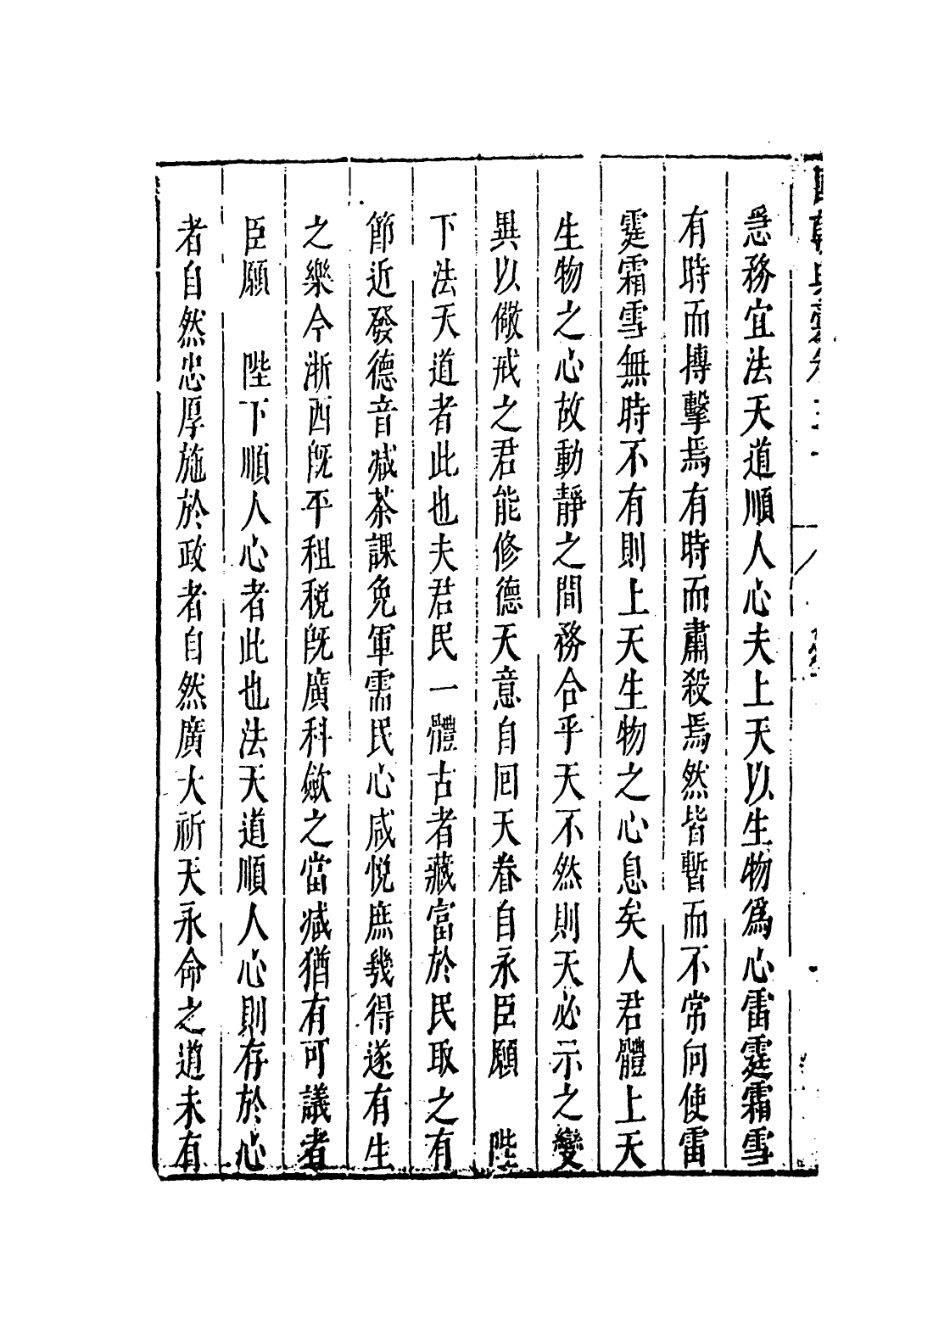 急務宜法天道順人心夫上天以生物爲心雷霆霜雪
有時而摶擊焉有時而肅殺焉然皆暫而不常向使雷
霆霜雪無時不有則上天生物之心息矣人君體上天
生物之心故動靜之間務合乎天不然則天必示之變
異以儆戒之君能修德天意自回天眷自永臣願　陛
下法天道者此也夫君民一體古者藏富於民取之有
節近發德音减茶課免軍需民心咸悅庶幾得遂有生
之樂今浙西旣平租稅旣廣科斂之當减猶有可議者
臣願　陛下順人心者此也法天道順人心則存於心
者自然忠厚施於政者自然廣大祈天永命之道未有